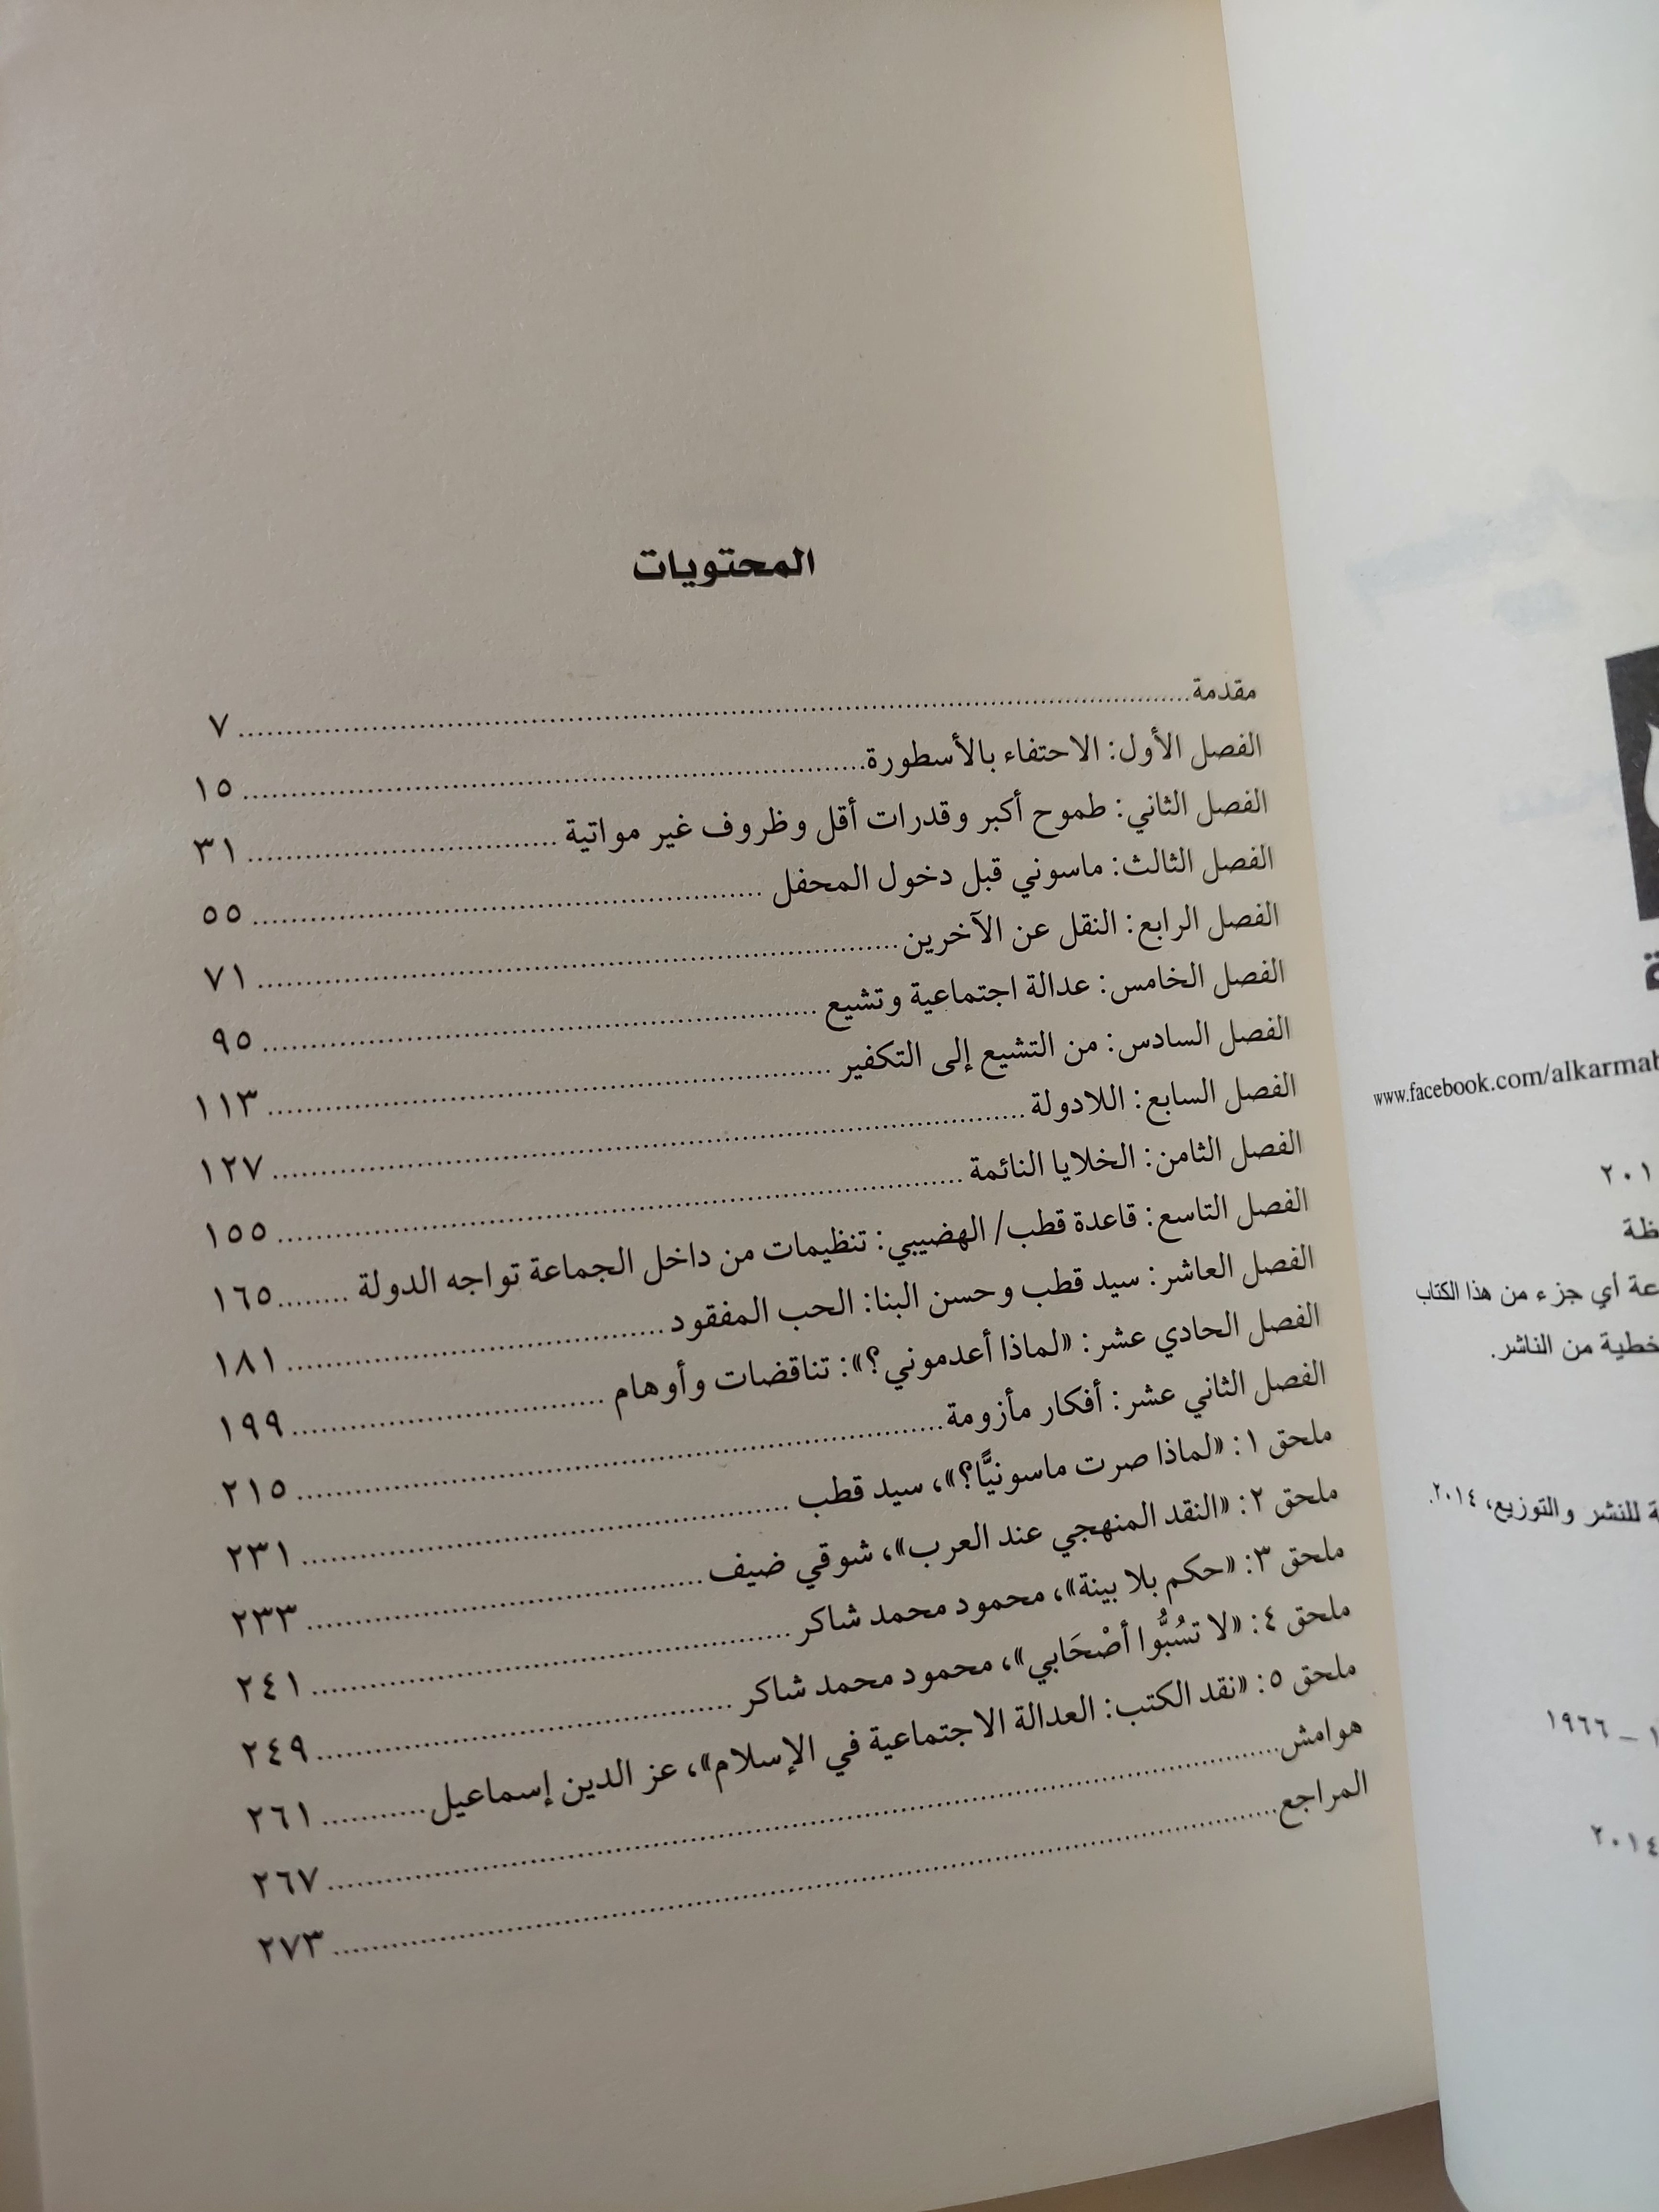 المحتويات
مقدمة ........ ٧
الفصل الأول: الاحتفاء بالأسطورة ........ ١٥
الفصل الثاني: طموح أكبر وقدرات أقل وظروف غير مواتية ........ ٣١
الفصل الثالث: ماسوني قبل دخول المحفل ........ ٥٥
الفصل الرابع: النقل عن الآخرين ........ ٧١
الفصل الخامس: عدالة اجتماعية وتشيع ........ ٩٥
الفصل السادس: من التشيع إلى التكفير ........ ١١٣
الفصل السابع: اللادولة ........ ١٢٧
الفصل الثامن: الخلايا النائمة ........ ١٥٥
الفصل التاسع: قاعدة قطب/ الهضيبي: تنظيمات من داخل الجماعة تواجه الدولة ........ ١٦٥
الفصل العاشر: سيد قطب وحسن البنا: الحب المفقود ........ ١٨١
الفصل الحادي عشر: «لماذا أعدموني؟»: تناقضات وأوهام ........ ١٩٩
الفصل الثاني عشر: أفكار مأزومة ........ ٢١٥
ملحق ١: «لماذا صرت ماسونيًّا؟»، سيد قطب ........ ٢٣١
ملحق ٢: «النقد المنهجي عند العرب»، شوقي ضيف ........ ٢٣٣
ملحق ٣: «حكم بلا بينة»، محمود محمد شاكر ........ ٢٤١
ملحق ٤: «لا تسُبُّوا أصْحَابي»، محمود محمد شاكر ........ ٢٤٩
ملحق ٥: «نقد الكتب: العدالة الاجتماعية في الإسلام»، عز الدين إسماعيل ........ ٢٦١
هوامش ........ ٢٦٧
المراجع ........ ٢٧٣
www.facebook.com/alkarmah
٢٠١
أي جزء من هذا الكتاب
خطية من الناشر.
للنشر والتوزيع، ٢٠١٤.
– ١٩٦٦
٢٠١٤